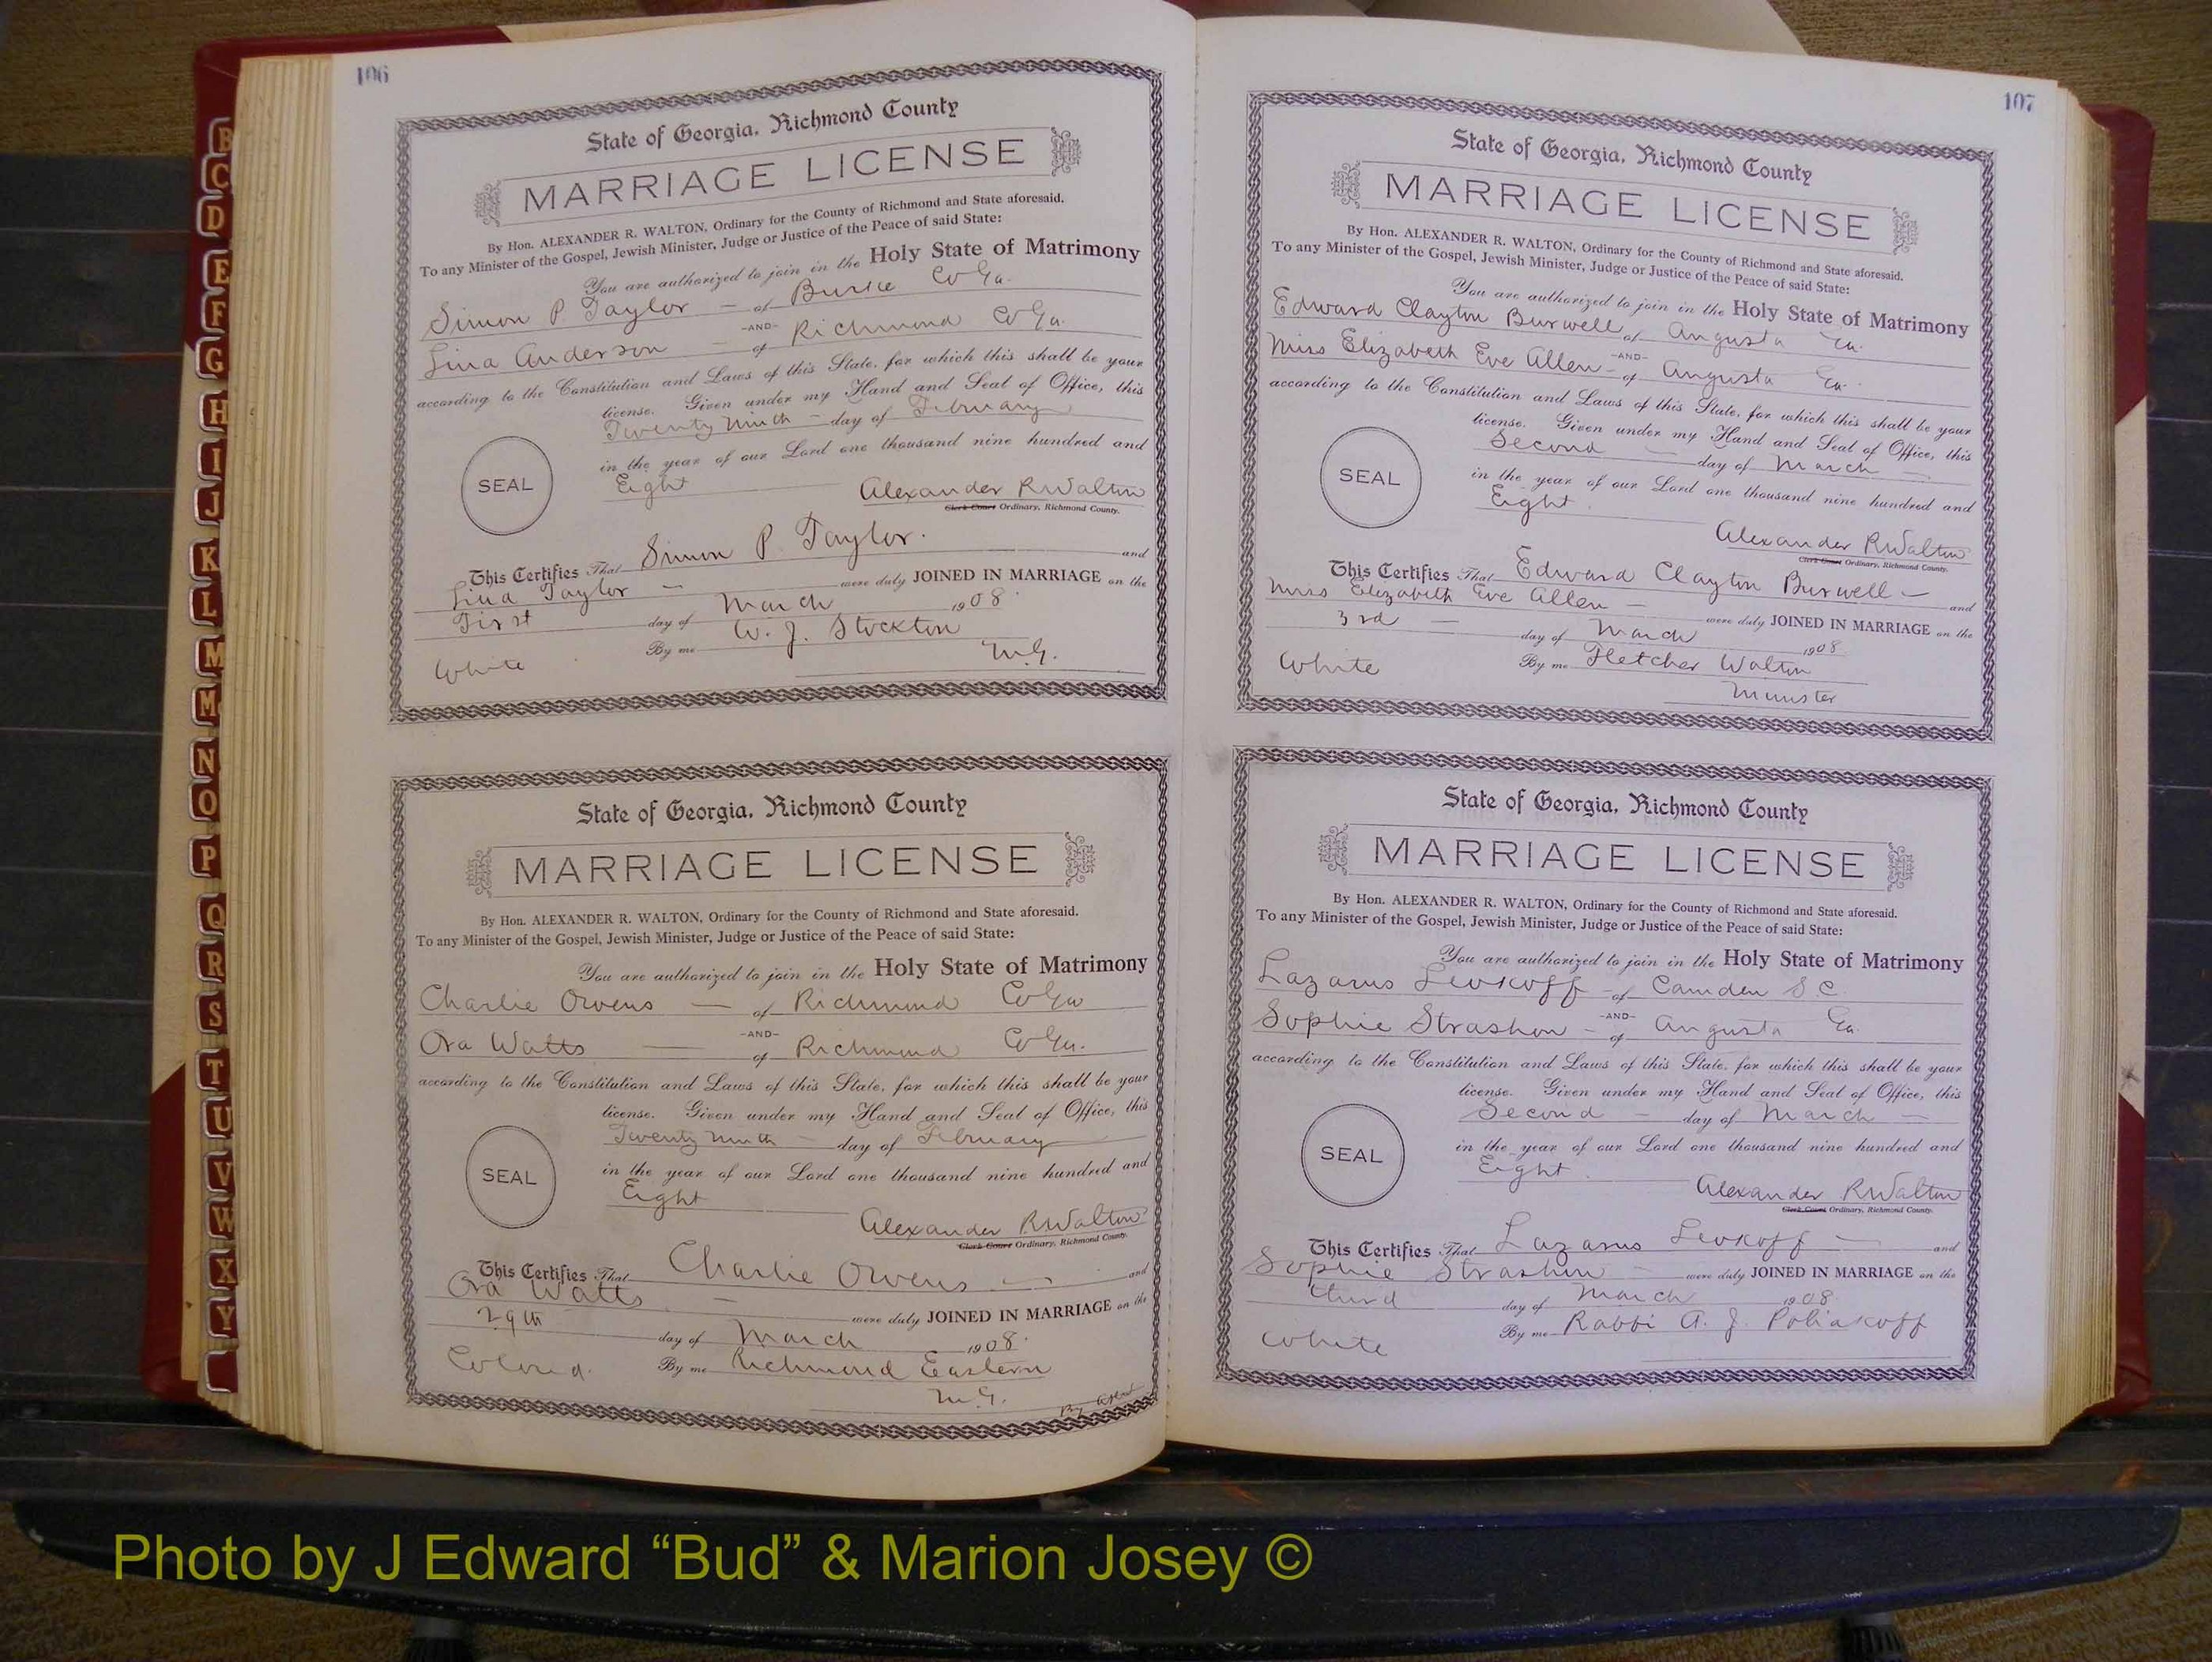 106
State of Georgia, Richmond County
MARRIAGE LICENSE
By Hon. ALEXANDER R. WALTON, Ordinary for the County of Richmond and State aforesaid.
To any Minister of the Gospel, Jewish Minister, Judge or Justice of the Peace of said State:
You are authorized to join in the Holy State of Matrimony
Simon P. Taylor — of Burke Co Ga.
-AND-
Lina Anderson — of Richmond Co Ga.
according to the Constitution and Laws of this State, for which this shall be your
license. Given under my Hand and Seal of Office, this
Twenty Ninth — day of February
in the year of our Lord one thousand nine hundred and
SEAL
Eight
Alexander R Walton
Clerk Court Ordinary, Richmond County.
This Certifies That Simon P. Taylor. and
Lina Taylor — were duly JOINED IN MARRIAGE on the
First day of March 1908.
By me W. J. Stockton
White M.G.
State of Georgia, Richmond County
MARRIAGE LICENSE
By Hon. ALEXANDER R. WALTON, Ordinary for the County of Richmond and State aforesaid.
To any Minister of the Gospel, Jewish Minister, Judge or Justice of the Peace of said State:
You are authorized to join in the Holy State of Matrimony
Charlie Owens — of Richmond Co Ga
-AND-
Ora Watts — of Richmond Co Ga.
according to the Constitution and Laws of this State, for which this shall be your
license. Given under my Hand and Seal of Office, this
Twenty Ninth — day of February
in the year of our Lord one thousand nine hundred and
SEAL
Eight
Alexander R Walton
Clerk Court Ordinary, Richmond County.
This Certifies That Charlie Owens — and
Ora Watts — were duly JOINED IN MARRIAGE on the
29th day of March 1908.
Colored. By me Richmond Eastern
M.G.
107
State of Georgia, Richmond County
MARRIAGE LICENSE
By Hon. ALEXANDER R. WALTON, Ordinary for the County of Richmond and State aforesaid.
To any Minister of the Gospel, Jewish Minister, Judge or Justice of the Peace of said State:
You are authorized to join in the Holy State of Matrimony
Edward Clayton Burwell of Augusta Ga.
-AND-
Miss Elizabeth Eve Allen — of Augusta Ga.
according to the Constitution and Laws of this State, for which this shall be your
license. Given under my Hand and Seal of Office, this
Second — day of March —
in the year of our Lord one thousand nine hundred and
SEAL
Eight
Alexander R Walton
Clerk Court Ordinary, Richmond County.
This Certifies That Edward Clayton Burwell — and
Miss Elizabeth Eve Allen — were duly JOINED IN MARRIAGE on the
3rd — day of March 1908
White By me Fletcher Walton
Minister
State of Georgia, Richmond County
MARRIAGE LICENSE
By Hon. ALEXANDER R. WALTON, Ordinary for the County of Richmond and State aforesaid.
To any Minister of the Gospel, Jewish Minister, Judge or Justice of the Peace of said State:
You are authorized to join in the Holy State of Matrimony
Lazarus Levkoff — of Camden S.C.
-AND-
Sophie Strashon — of Augusta Ga.
according to the Constitution and Laws of this State, for which this shall be your
license. Given under my Hand and Seal of Office, this
Second — day of March —
in the year of our Lord one thousand nine hundred and
SEAL
Eight
Alexander R Walton
Clerk Court Ordinary, Richmond County.
This Certifies That Lazarus Levkoff — and
Sophie Strashon — were duly JOINED IN MARRIAGE on the
third day of March 1908
White By me Rabbi A. J. Poliakoff
B
C
D
E
F
G
H
I
J
K
L
M
M
N
O
P
Q
R
S
T
U
V
W
X
Y
Photo by J Edward “Bud” & Marion Josey ©